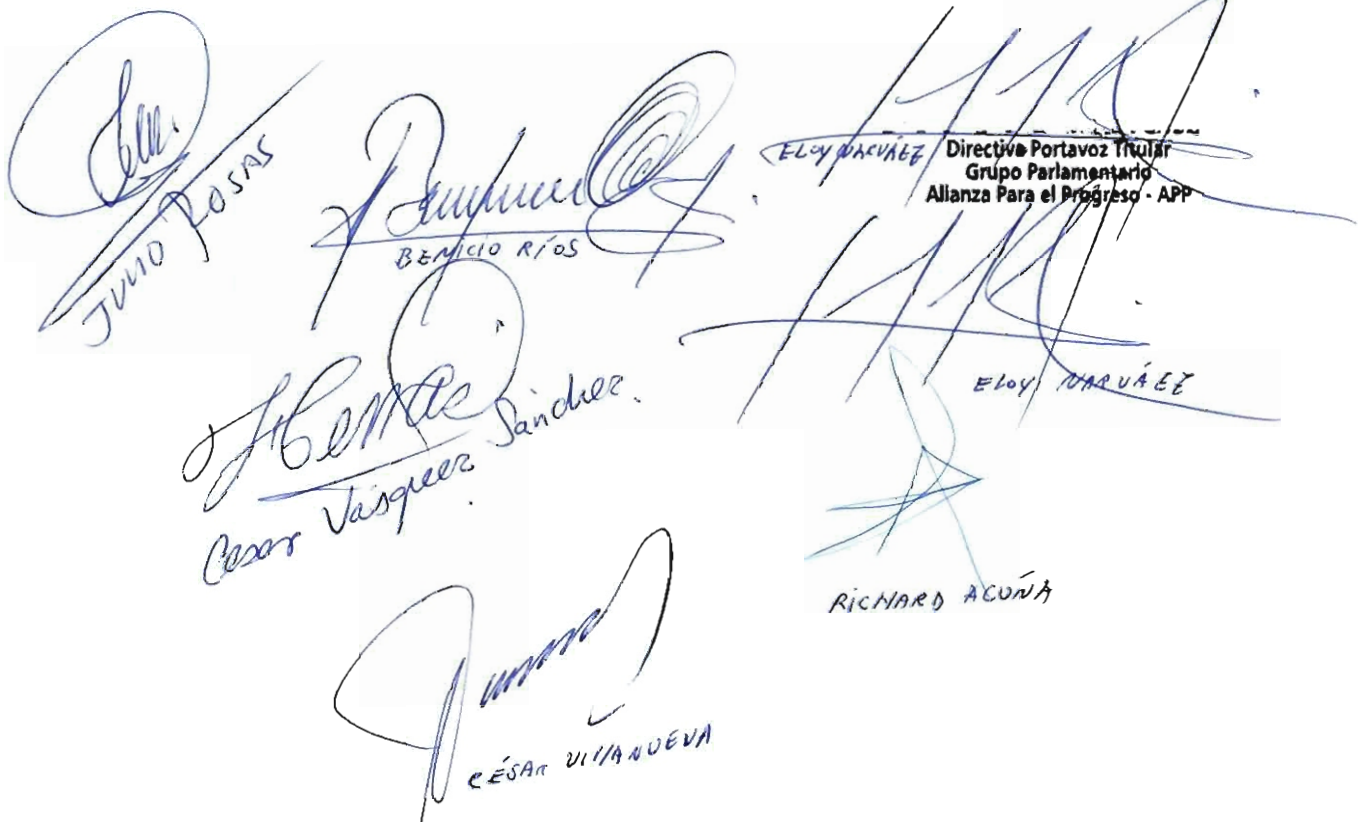 JULIO ROSAS
BENICIO RÍOS
ELOY NARVÁEZ
Directiva Portavoz Titular
Grupo Parlamentario
Alianza Para el Progreso - APP
ELOY NARVÁEZ
Cesar Vásquez Sánchez.
RICHARD ACUÑA
CÉSAR VILLANUEVA